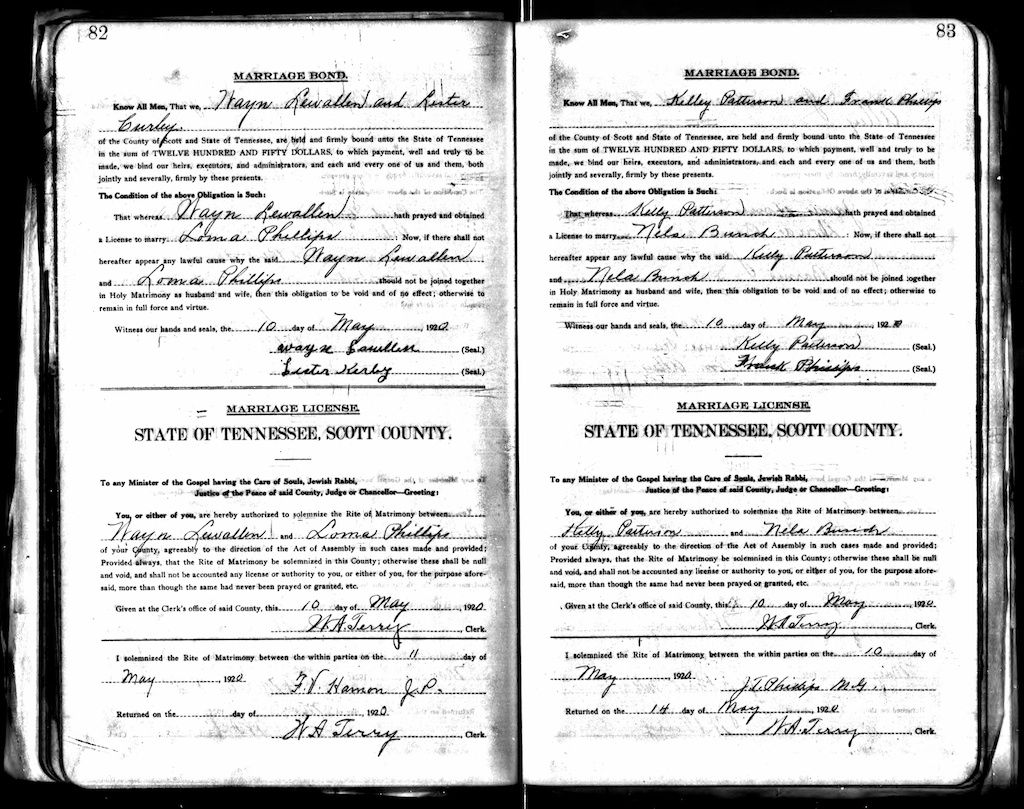 82
MARRIAGE BOND.
Know All Men, That we, Wayn Lewallen and Lester
Curley
of the County of Scott and State of Tennessee, are held and firmly bound unto the State of Tennessee
in the sum of TWELVE HUNDRED AND FIFTY DOLLARS, to which payment, well and truly to be
made, we bind our heirs, executors, and administrators, and each and every one of us and them, both
jointly and severally, firmly by these presents.
The Condition of the above Obligation is Such:
That whereas Wayn Lewallen hath prayed and obtained
a License to marry Loma Phillips : Now, if there shall not
hereafter appear any lawful cause why the said Wayn Lewallen
and Loma Phillips should not be joined together
in Holy Matrimony as husband and wife, then this obligation to be void and of no effect; otherwise to
remain in full force and virtue.
Witness our hands and seals, the 10 day of May, 1920.
Wayn Lauellen (Seal.)
Lester Kerby (Seal.)
MARRIAGE LICENSE.
STATE OF TENNESSEE, SCOTT COUNTY.
To any Minister of the Gospel having the Care of Souls, Jewish Rabbi,
Justice of the Peace of said County, Judge or Chancellor—Greeting:
You, or either of you, are hereby authorized to solemnize the Rite of Matrimony between
Wayn Lewallen and Loma Phillips
of your County, agreeably to the direction of the Act of Assembly in such cases made and provided;
Provided always, that the Rite of Matrimony be solemnized in this County; otherwise these shall be null
and void, and shall not be accounted any license or authority to you, or either of you, for the purpose afore-
said, more than though the same had never been prayed or granted, etc.
Given at the Clerk's office of said County, this 10 day of May 1920
W A Terry, Clerk.
I solemnized the Rite of Matrimony between the within parties on the 11 day of
May, 1920 F. V. Harmon J.P.
Returned on the day of , 1920.
W A Terry Clerk.
83
MARRIAGE BOND.
Know All Men, That we, Kelley Patterson and Frank Phillips
of the County of Scott and State of Tennessee, are held and firmly bound unto the State of Tennessee
in the sum of TWELVE HUNDRED AND FIFTY DOLLARS, to which payment, well and truly to be
made, we bind our heirs, executors, and administrators, and each and every one of us and them, both
jointly and severally, firmly by these presents.
The Condition of the above Obligation is Such:
That whereas Kelly Patterson hath prayed and obtained
a License to marry Nela Bunch : Now, if there shall not
hereafter appear any lawful cause why the said Kelly Patterson
and Nela Bunch should not be joined together
in Holy Matrimony as husband and wife, then this obligation to be void and of no effect; otherwise to
remain in full force and virtue.
Witness our hands and seals, the 10 day of May, 1920
Kelly Patterson (Seal.)
Frank Phillips (Seal.)
MARRIAGE LICENSE.
STATE OF TENNESSEE, SCOTT COUNTY.
To any Minister of the Gospel having the Care of Souls, Jewish Rabbi,
Justice of the Peace of said County, Judge or Chancellor—Greeting:
You, or either of you, are hereby authorized to solemnize the Rite of Matrimony between
Kelly Patterson and Nela Bunch
of your County, agreeably to the direction of the Act of Assembly in such cases made and provided;
Provided always, that the Rite of Matrimony be solemnized in this County; otherwise these shall be null
and void, and shall not be accounted any license or authority to you, or either of you, for the purpose afore-
said, more than though the same had never been prayed or granted, etc.
Given at the Clerk's office of said County, this 10 day of May 1920.
W A Terry, Clerk.
I solemnized the Rite of Matrimony between the within parties on the 10 day of
May, 1920. J. T. Phillips M.G.
Returned on the 14 day of May, 1920
W. A. Terry Clerk.